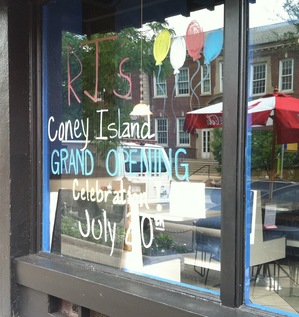 RJ's
Coney Island
GRAND OPENING
Celebration
July 20th